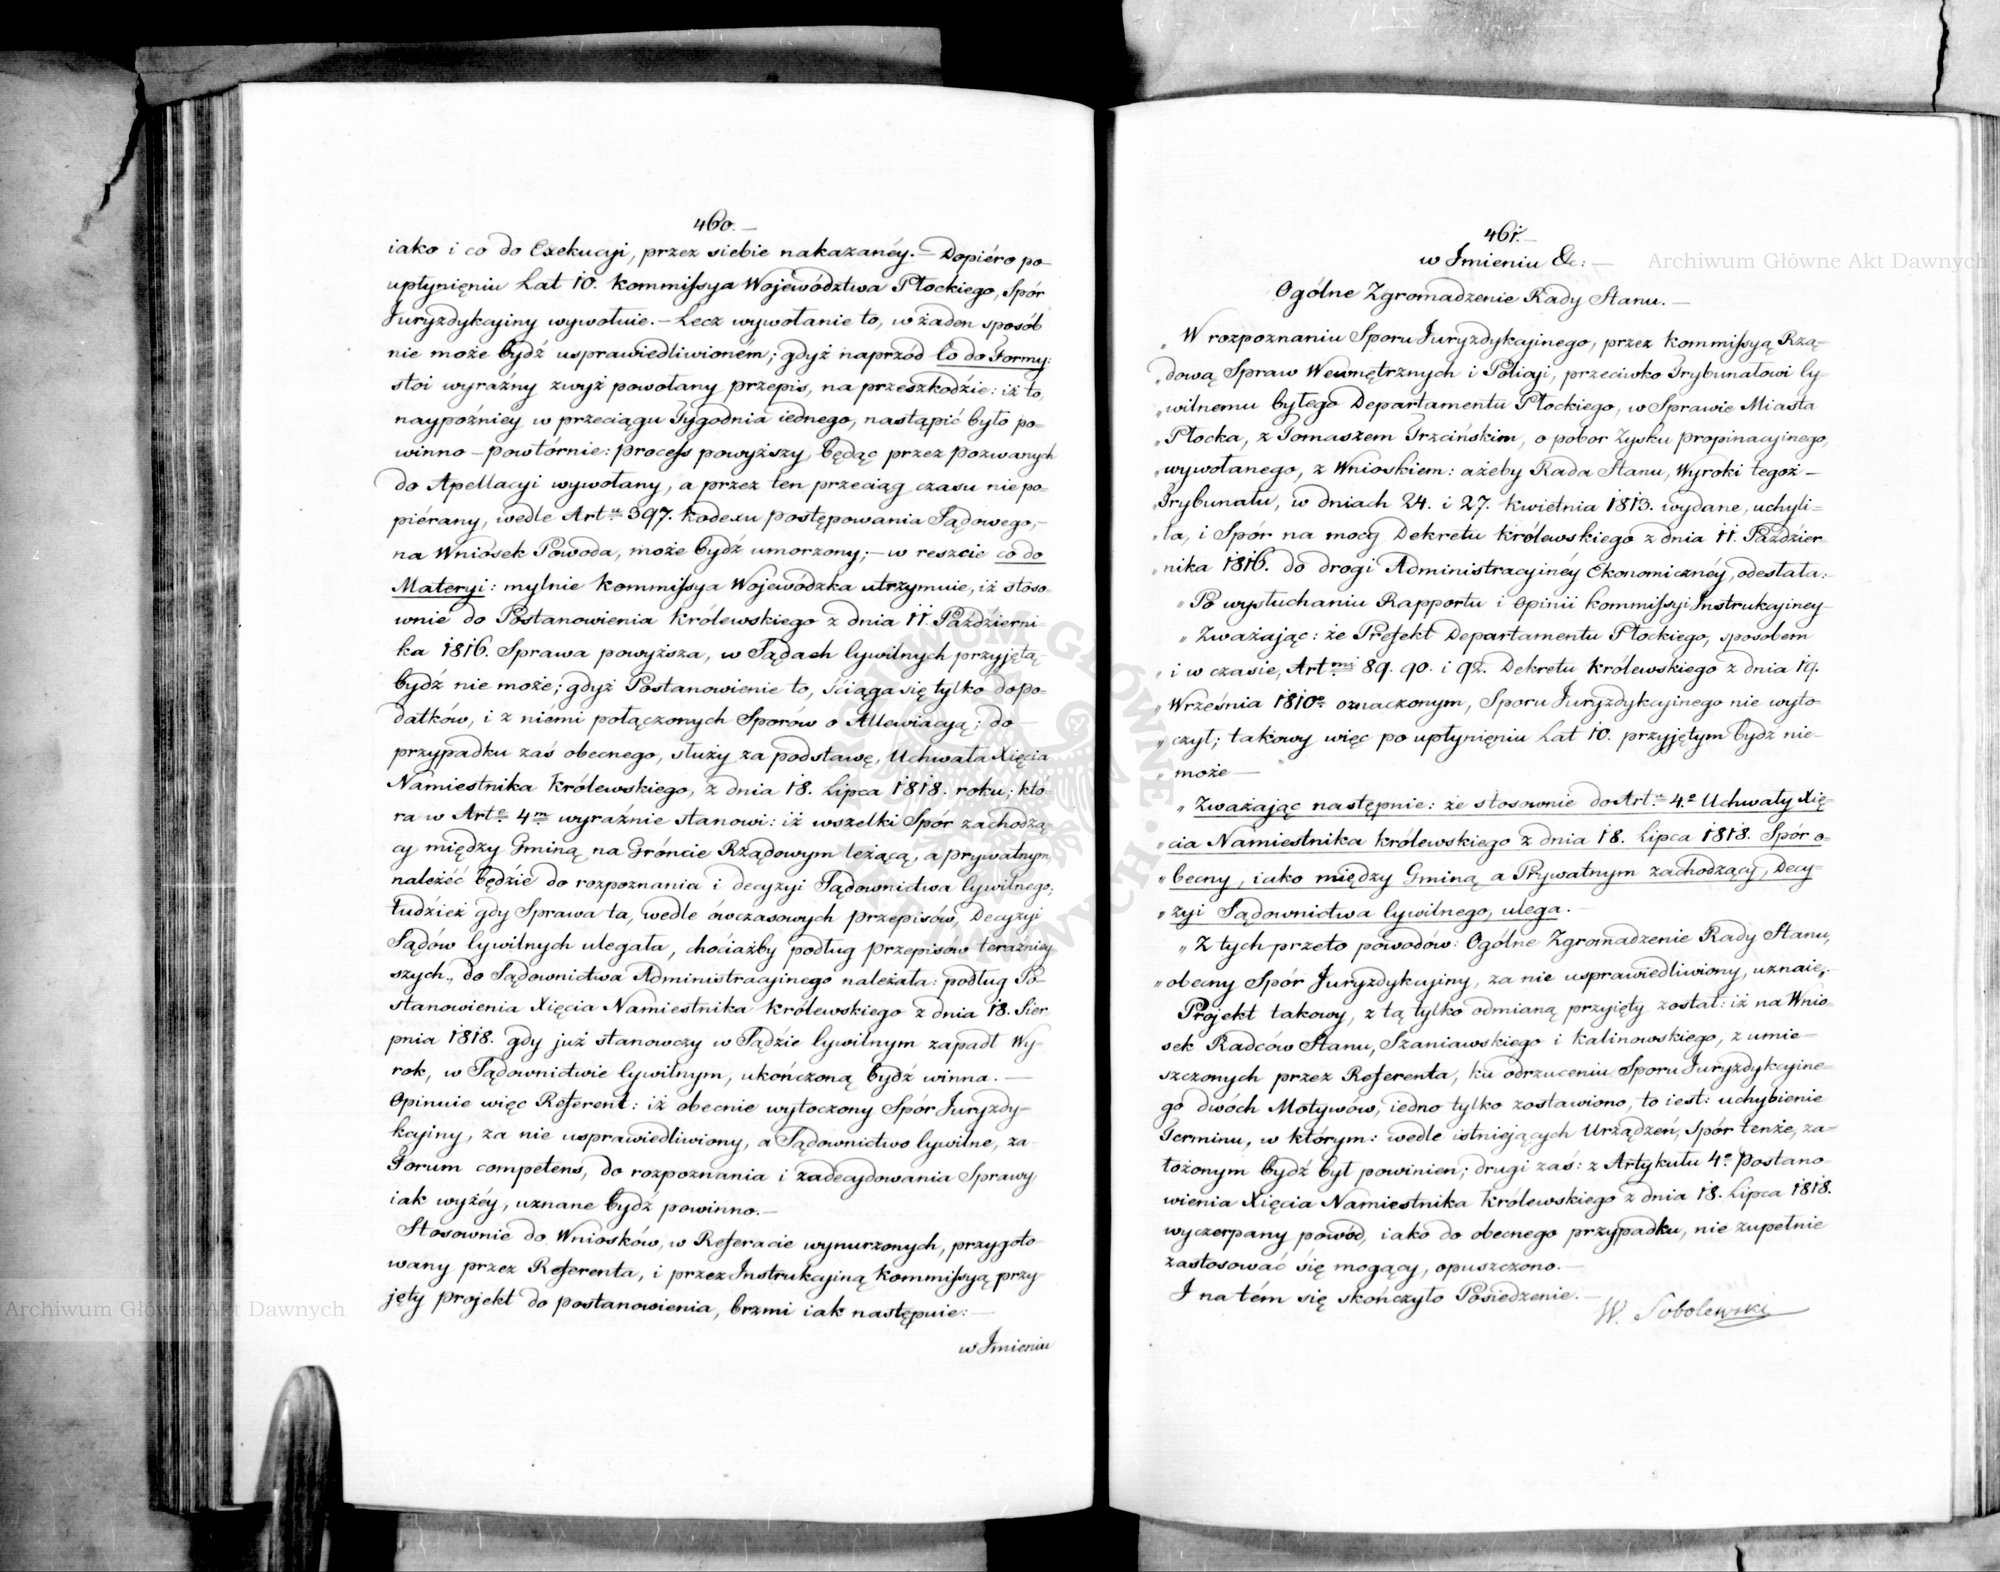 460.—
iako i co do Exekucyi, przez siebie nakazanéy.— Dopiéro po
upłynięniu Lat 10. Kommissya Województwa Płockiego, Spór
Juryzdykcyiny wywołuie.— Lecz wywołanie to, w żaden sposób
nie może bydź usprawiedliwioném; gdyż naprzód Co do Formy:
stoi wyraźny zwyż powołany przepis, na przeszkodzie: iż to,
naypóźniey w przeciągu Tygodnia iednego, nastąpić było po-
winno — powtórnie: process powyższy, będąc przez Pozwanych
do Apellacyi wywołany, a przez ten przeciąg czasu nie po-
piérany, wedle Art. 397. Kodexu Postępowania Sądowego,—
na Wniosek Powoda, może bydź umorzony;— w reszcie co do
Materyi: mylnie Kommissya Wojewódzka utrzymuie, iż stoso-
wnie do Postanowienia Królewskiego z dnia 11. Październi-
ka 1816. Sprawa powyższa, w Sądach Cywilnych przyjętą
bydź nie może; gdyż Postanowienie to, ściąga się tylko do po-
datków, i z niémi połączonych Sporów o Allewiacyą; do—
przypadku zaś obecnego, służy za podstawę, Uchwała Xięcia
Namiestnika Królewskiego, z dnia 18. Lipca 1818. roku; któ-
ra w Art. 4m wyraźnie stanowi: iż wszelki Spór zachodzą-
cy między Gminą na Gróncie Rządowym leżącą, a prywatnym,
należéć będzie do rozpoznania i decyzyi Sądownictwa Cywilnego;
tudzież gdy Sprawa ta, wedle ówczasowych przepisów, Decyzyi
Sądów Cywilnych ulegała, chociażby podług przepisow teraźniey
szych, do Sądownictwa Administracyinego należała: podług Po-
stanowienia Xięcia Namiestnika Królewskiego z dnia 18. Sier-
pnia 1818. gdy już stanowczy w Sądzie Cywilnym zapadł Wy-
rok, w Sądownictwie Cywilnym, ukończoną bydź winna.—
Opinuie więc Referent: iż obecnie wytoczony Spór Juryzdy-
kcyiny, za nie usprawiedliwiony, a Sądownictwo Cywilne, za—
Forum competens, do rozpoznania i zadecydowania Sprawy
iak wyżéy, uznane bydź powinno.—
Stosownie do Wniosków, w Referacie wynurzonych, przygoto-
wany przez Referenta, i przez Instrukcyiną Kommissyą przy-
jęty projekt do postanowienia, brzmi iak następuie:—
w Jmieniu
461.—
w Jmieniu &c:—
Ogólne Zgromadzenie Rady Stanu.—
„ W rozpoznaniu Sporu Juryzdykcyinego, przez Kommissyą Rzą-
„dową Spraw Wewnętrznych i Policyi, przeciwko Trybunałowi Cy-
„wilnemu byłego Departamentu Płockiego, w Sprawie Miasta
„Płocka, z Tomaszem Trzcińskim, o pobor Zysku propinacyinego,
„wywołanego, z Wnioskiem: ażeby Rada Stanu, Wyroki tegoż—
„Trybunału, w dniach 24. i 27. Kwietnia 1813. wydane, uchyli-
„ła, i Spór na mocy Dekretu Królewskiego z dnia 11. Paździer-
„nika 1816. do drogi Administracyinéy Ekonomicznéy, odesłała:
„ Po wysłuchaniu Rapportu i Opinii Kommissyi Instrukcyiney—
„ Zważając: że Prefekt Departamentu Płockiego, sposobem
„ i w czasie, Art.mi 89. 90. i 92. Dekretu Królewskiego z dnia 19.
„ Września 1810o oznaczonym, Sporu Juryzdykcyinego nie wyto-
„ czył; takowy więc po upłynięniu Lat 10. przyjętym bydź nie—
„ może—
„ Zważając następnie: że stosownie do Art. 4o Uchwały Xię-
„ cia Namiestnika Królewskiego z dnia 18. Lipca 1818. Spór o-
„ becny, iako między Gminą a Prywatnym zachodzący, Decy-
„ zyi Sądownictwa Cywilnego, ulega.—
„ Z tych przeto powodów: Ogólne Zgromadzenie Rady Stanu,
„ obecny Spór Juryzdykcyiny, za nie usprawiedliwiony, uznaie„—
Projekt takowy, z tą tylko odmianą przyięty został: iż na Wnio-
sek Radców Stanu, Szaniawskiego i Kalinowskiego, z umie-
szczonych przez Referenta, ku odrzuceniu Sporu Juryzdykcyine-
go dwóch Motywów, iedno tylko zostawiono, to iest: uchybienie
Terminu, w którym: wedle istniejących Urządzeń, Spór tenże, za-
łożonym bydź był powinien; drugi zaś: z Artykułu 4o Postano-
wienia Xięcia Namiestnika Królewskiego z dnia 18. Lipca 1818.
wyczerpany powód, iako do obecnego przypadku, nie zupełnie
zastosować się mogący, opuszczono.—
I na tém się skończyło Posiedzenie.—
W. Sobolewski
Archiwum Główne Akt Dawnych
Archiwum Główne Akt Dawnych